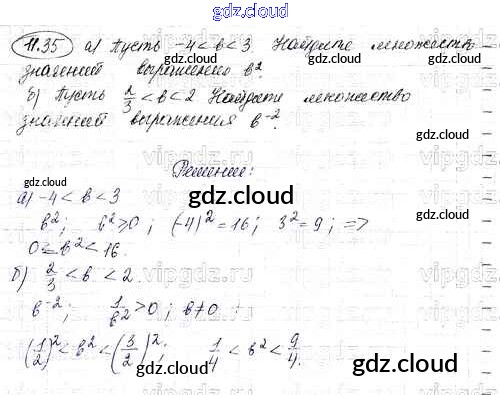 gdz.cloud
11.35 а) Пусть -4 < в < 3. Найдите множество
значений выражения в².
б) Пусть 2/3 < в < 2 Найдите множество
значений выражения в⁻².
gdz.cloud
Решение:
gdz.cloud
а) -4 < в < 3
в²; в² ≥ 0; (-4)² = 16; 3² = 9; =>
0 ≤ в² < 16.
б) 2/3 < в < 2.
в⁻²; 1/в² > 0; в ≠ 0
(1/2)² < в² < (3/2)²; 1/4 < в² < 9/4.
gdz.cloud
gdz.cloud
gdz.cloud